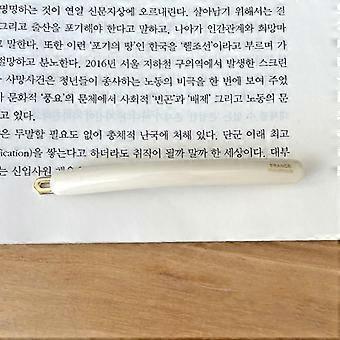 명명하는 것이 연일 신문지상에 오르내린다. 살아남기 위해서는 결
그리고 출산을 포기해야 한다고 말하고, 나아가 인간관계와 희망마
고 말한다. 또한 이런 '포기의 땅'인 한국을 '헬조선'이라고 부르며 가
절망하고 분노한다. 2016년 서울 지하철 구의역에서 발생한 스크린
사망사건은 청년들이 종사하는 노동의 비극을 한 번에 보여 주었
가 문화적 '풍요'의 문제에서 사회적 '빈곤'과 '배제' 그리고 노동의 문
은 두말할 필요도 없이 총체적 난국에 처해 있다. 단군 이래 최고
fication)을 쌓는다고 하더라도 취직이 될까 말까 한 세상이다. 대부
는 신입사원
FRANCE